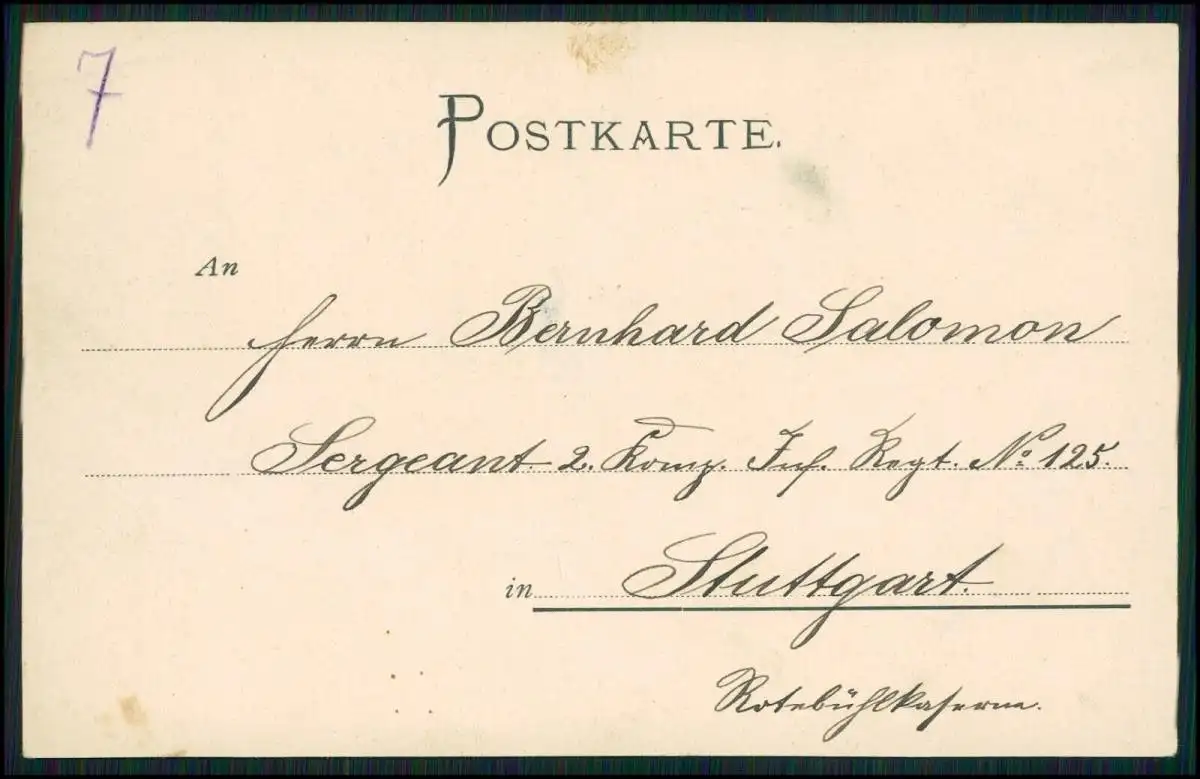 7
POSTKARTE.
An
Herrn Bernhard Salomon
Sergeant 2. Komp. Inf. Regt. No 125.
in Stuttgart.
Rotebühlkaserne.